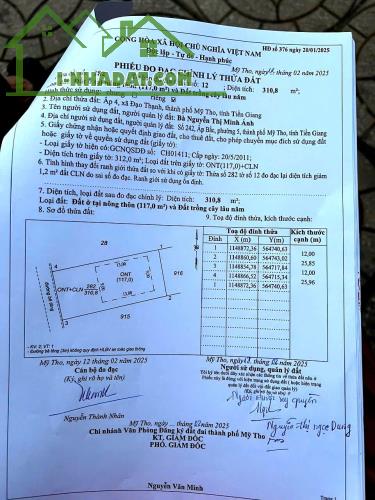 1NHADAT.COM
CỘNG HÒA XÃ HỘI CHỦ NGHĨA VIỆT NAM
HĐ số 376 20/01/2025
Độc lập - Tự do - Hạnh phúc
Mỹ Tho, 02 năm 2025
PHIẾU ĐO ĐẠC CHỈNH LÝ THỬA ĐẤT
12 ; Diện tích: 310,8 m²
(117,0 m²) và Đất trồng cây lâu năm
riêng
2. Địa chỉ thửa đất: Ấp 4, xã Đạo Thạnh, thành phố Mỹ Tho, tỉnh Tiền Giang
3. Tên người sử dụng đất, người quản lý đất: Bà Nguyễn Thị Minh Ánh
4. Địa chỉ người sử dụng đất, người quản lý đất: Số 242, Ấp Bắc, phường 5, thành phố Mỹ Tho, tỉnh Tiền Giang
5. Giấy chứng nhận hoặc quyết định giao đất, cho thuê đất, cho phép chuyển mục đích sử dụng đất
hoặc giấy tờ về quyền sử dụng đất:
- Loại giấy tờ hiện có: GCNQSDĐ số: CH01411; Cấp ngày: 20/5/2011;
- Diện tích trên giấy tờ: 312,0 m²; Loại đất trên giấy tờ: ONT(117,0)+CLN
6. Tình hình thay đổi ranh giới thửa đất so với khi có giấy tờ: Thửa số 282 tờ số 12 đo đạc lại diện tích giảm
1,2 m² đất CLN do sai số đo đạc. Ranh giới sử dụng ổn định.
7. Diện tích, loại đất sau đo đạc chỉnh lý: 310,8 m²
Loại đất: Đất ở tại nông thôn (117,0 m²) và Đất trồng cây lâu năm
8. Sơ đồ thửa đất:
9. Toạ độ đỉnh thửa, kích thước cạnh:
Toạ độ đỉnh thửa Kích thước
Đỉnh X (m) Y(m) cạnh (m)
1 1148872,36 564740,63
12,00
2 1148860,60 564743,02
25,85
3 1148854,78 564717,84
12,00
4 1148866,52 564715,34
25,96
1 1148872,36 564740,63
28
916
915
ONT
(117,0)
ONT+CLN 282
310,8
1
2
3
4
- KV: 2, VT: 1
Mỹ Tho, ngày 12 tháng 02 năm 2025
Cán bộ đo đạc
(Ký, ghi rõ họ và tên)
Nguyễn Thành Nhân
năm 2025
Người sử dụng, quản lý đất
(Ký, ghi rõ họ tên)
Người được uỷ quyền
Nguyễn Thị Ngọc Dung
Mỹ Tho, năm 2025
Chi nhánh Văn Phòng Đăng ký đất đai thành phố Mỹ Tho
KT. GIÁM ĐỐC
PHÓ. GIÁM ĐỐC
Nguyễn Văn Minh